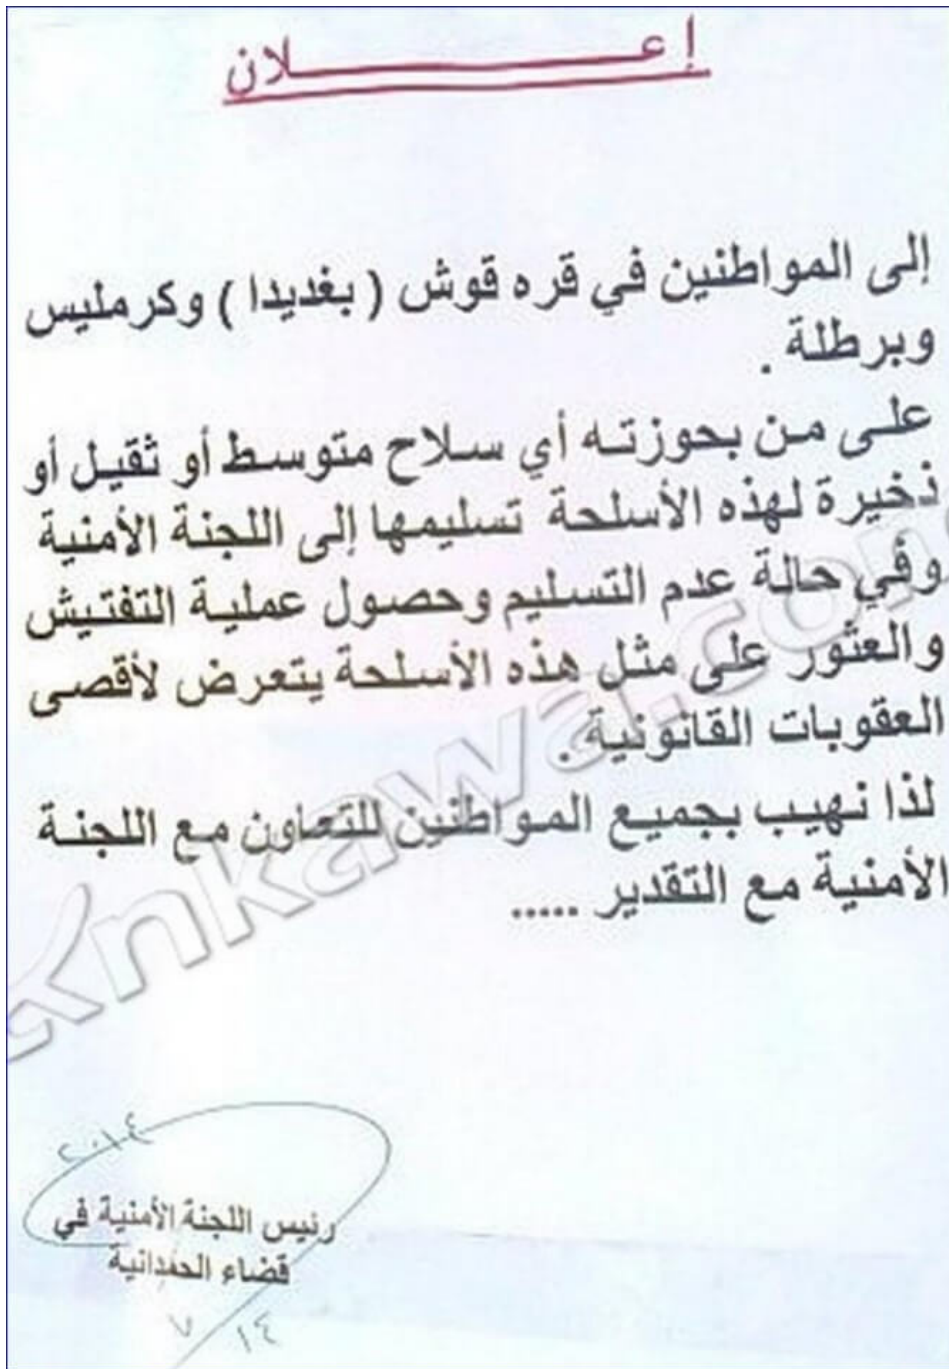 إعـــــــــلان
إلى المواطنين في قره قوش ( بغديدا ) وكرمليس
وبرطلة .
على من بحوزته أي سلاح متوسط أو ثقيل أو
ذخيرة لهذه الأسلحة تسليمها إلى اللجنة الأمنية
وفي حالة عدم التسليم وحصول عملية التفتيش
والعثور على مثل هذه الأسلحة يتعرض لأقصى
العقوبات القانونية .
لذا نهيب بجميع المواطنين للتعاون مع اللجنة
الأمنية مع التقدير .....
Ankawa.com
٢٠١٤
رئيس اللجنة الأمنية في
قضاء الحمدانية
٧ / ١٤